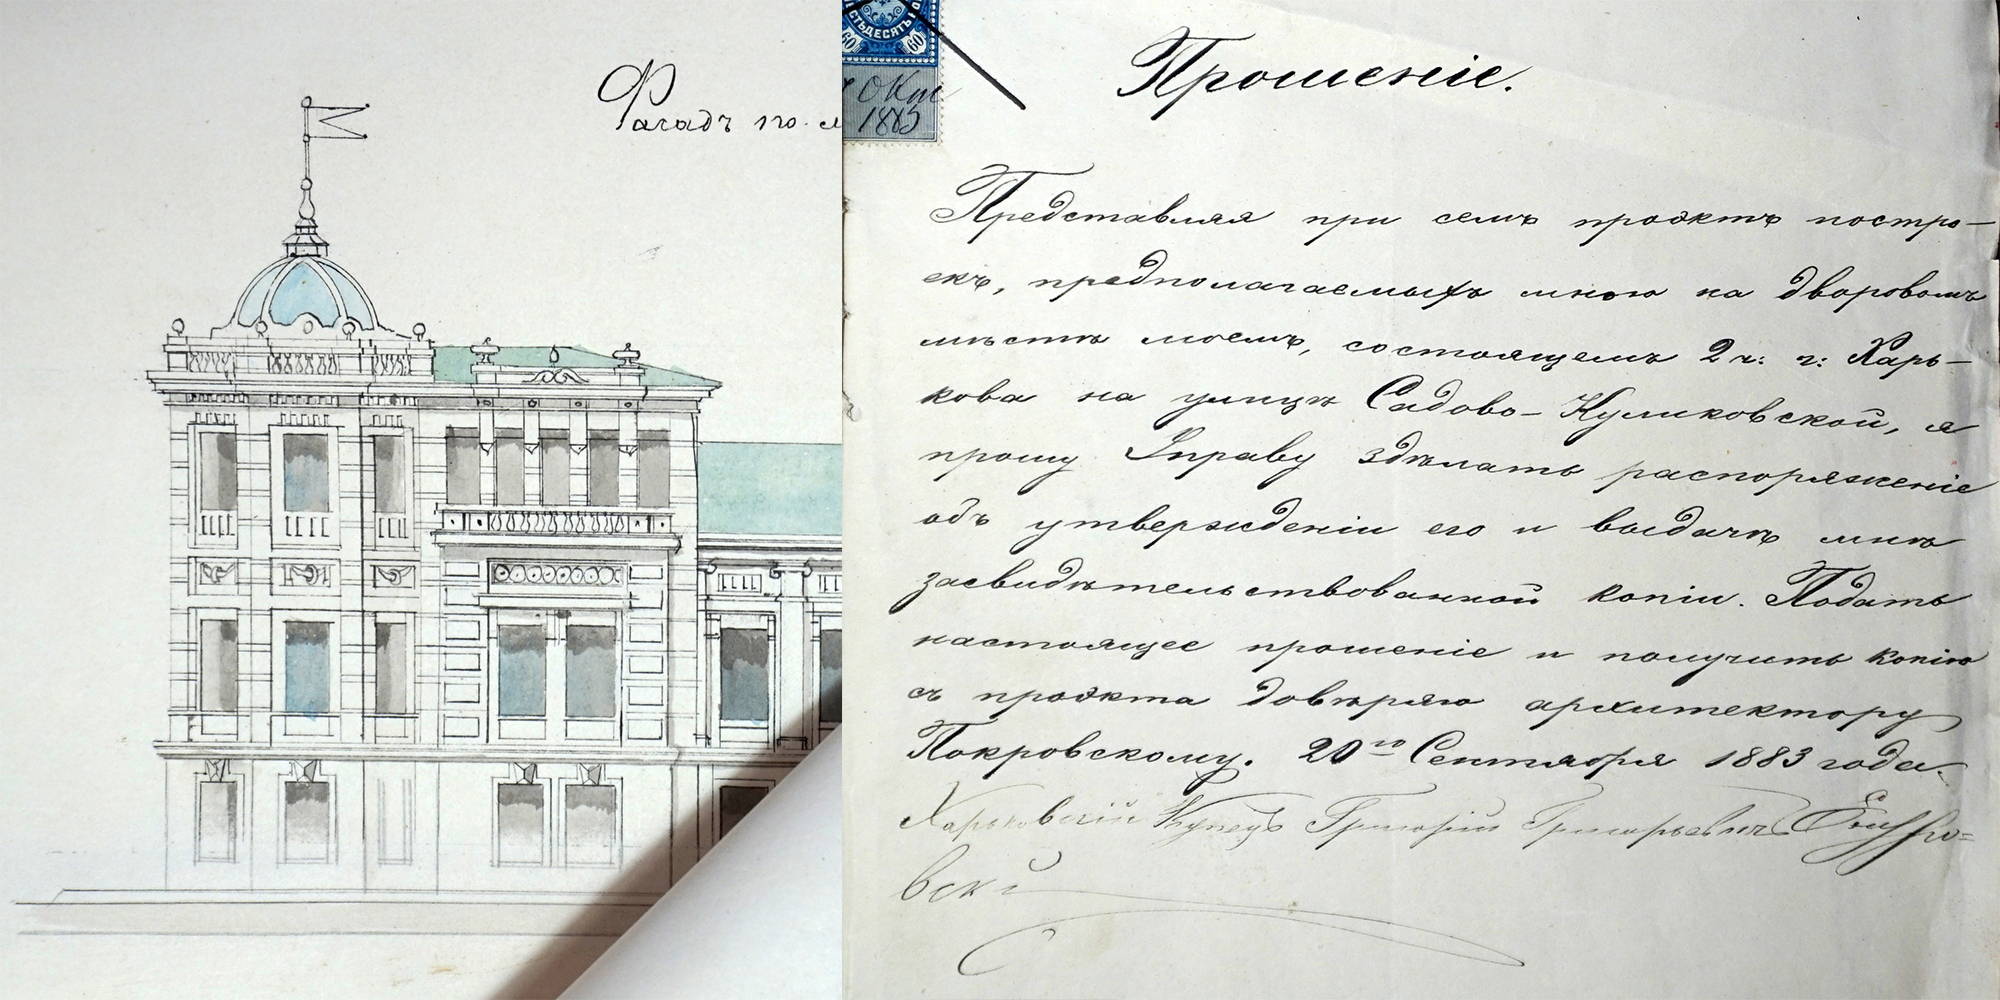 Фасадъ по
ШЕСТЬДЕСЯТЪ КО
60 60
7 Окт
1883
Прошеніе.
Представляя при семъ проэктъ постро-
екъ, предполагаемыхъ мною на дворовомъ
мѣстѣ моемъ, состоящемъ 2 ч: г: Харь-
кова на улицѣ Садово-Куликовской, я
прошу Управу здѣлать распоряженіе
объ утвержденіи его и выдачѣ мнѣ
засвидѣтельствованной копіи. Подать
настоящее прошеніе и получить копію
съ проэкта довѣряю архитектору
Покровскому. 20го Сентября 1883 года.
Харьковскій Купецъ Григорій Григорьевичъ
вскі